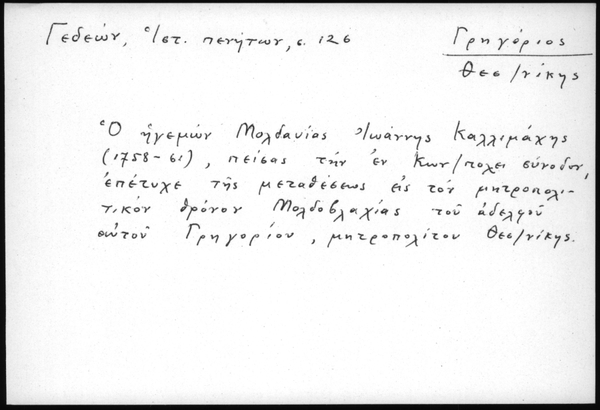 Γεδεών, Ἱστ. πενήτων, σ. 126
Γρηγόριος
Θεσ/νίκης
Ὁ ἡγεμών Μολδαυίας Ἰωάννης Καλλιμάχης
(1758-61), πείσας τήν ἐν Κων/πολει σύνοδον,
ἐπέτυχε τῆς μεταθέσεως εἰς τόν μητροπολι-
τικόν θρόνον Μολδοβλαχίας τοῦ ἀδελφοῦ
αὐτοῦ Γρηγορίου, μητροπολίτου Θεσ/νίκης.